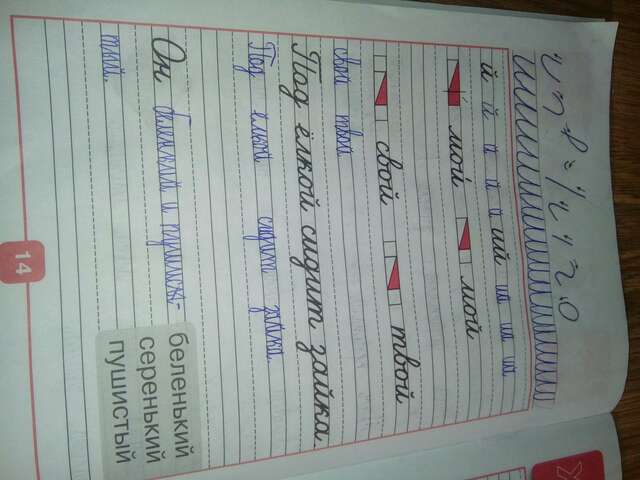 й й й й й ий ий ий ий
мой мой
свой твой
свой твой
Под ёлкой сидит зайка
Под ёлкой сидит зайка.
Он беленький и пушис-
тый.
беленький
серенький
пушистый
14